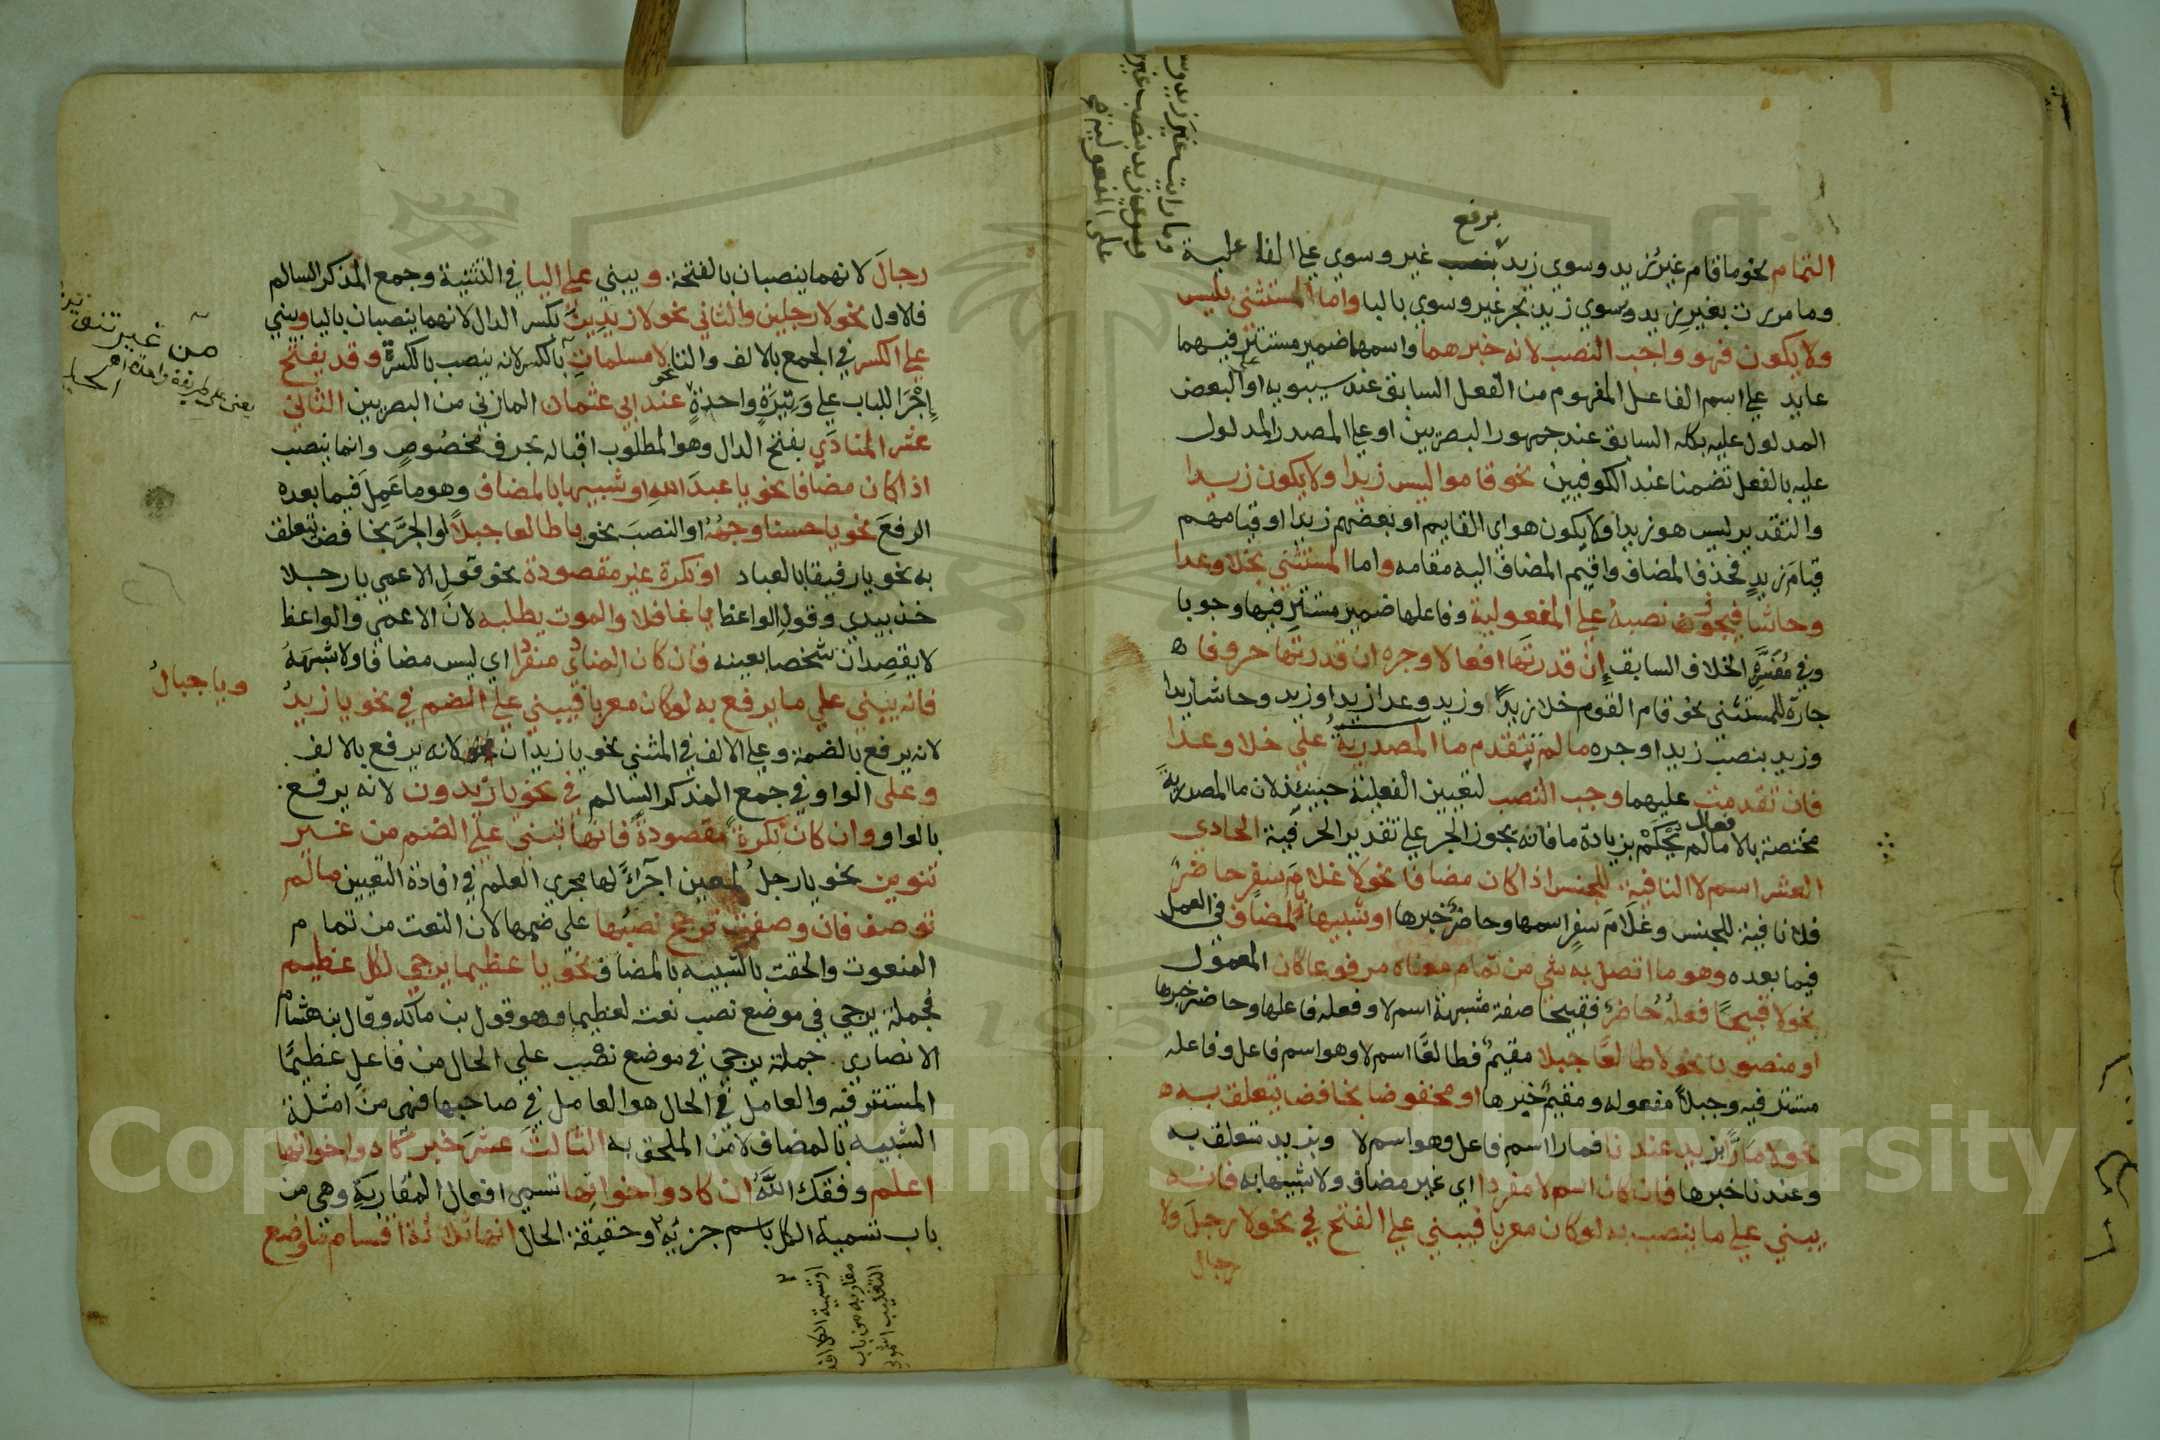 وما رايت غير زيد وسوى
وسوى زيد بنصب غير
على المفعولية
يرفع
التمام نحو ما قام غير زيد وسوي زيد غير وسوي علي الفاعلية
وما مررت بغير زيد وسوي زيد بجر غير وسوي باليا واما المستثني بليس
ولا يكون فهو واجب النصب لانه خبرهما واسمها ضمير مستتر فيهما
عايد علي اسم الفاعل المفهوم من الفعل السابق عند سيبويه او البعض
المدلول عليه بكله السابق عند جمهور البصريين او علي المصدر المدلول
عليه بالفعل تضمنا عند الكوفيين نحو قاموا ليس زيدا ولا يكون زيدا
والتقدير ليس هو زيدا ولا يكون هو اى القايم او بعضهم زيدا او قيامهم
قيام زيد فحذف المضاف واقيم المضاف اليه مقامه واما المستثني بخلا وعدا
وحاشا فيجوز نصبه علي المفعولية وفاعلها ضمير مستتر فيها وجوبا
وفي مفسره الخلاف السابق ان قدرتها افعالا وجره ان قدرتها حروفا
جارة للمستثني نحو قام القوم خلا زيدا او زيد وعدا زيدا وزيد وحاشا زيدا
وزيد بنصب زيدا وجره ما لم تتقدم ما المصدرية علي خلا وعدا
فان تقدمت عليهما وجب النصب لتعيين الفعلية حينيذ لان ما المصدرية
مختصة بالافعال ما لم يحكم بزيادة ما فانه يجوز الجر علي تقدير الحرفية الحادي
العشر اسم لا النافية للجنس اذا كان مضافا نحو لا غلام سفر حاضر
فلا نافية للجنس وغلام سفر اسمها وحاضر خبرها او شبيها بالمضاف في العمل
فيما بعده وهو ما اتصل به شي من تمام معناه مرفوعا كان المعمول
نحو لا قبيحا فعله حاضر فقبيحا صفة مشبهة اسم لا وفعله فاعلها وحاضر خبرها
او منصوبا نحو لا طالعا جبلا مقيم فطالعا اسم لا وهو اسم فاعل وفاعله
مستتر فيه وجبلا مفعوله ومقيم خبرها او مخفوضا بخافض يتعلق به
نحو لا مارا بزيد عندنا فمارا اسم فاعل وهو اسم لا وبزيد متعلق به
وعندنا خبرها فان كان اسم لا مفردا اي غير مضاف ولا شبيها به فانه
يبني علي ما ينصب به لو كان معربا فيبني علي الفتح في نحو لا رجل ولا
رجال
رجال لانهما ينصبان بالفتحة ويبني علي اليا في التثنية وجمع المذكر السالم
فالاول نحو لا رجلين والثاني نحو لا زيدين بكسر الدال لانهما ينصبان باليا ويبني
علي الكسر في الجمع بالالف والتا نحو لا مسلمات بالكسر لانه ينصب بالكسرة وقد يفتح
اجرا للباب علي وتيرة واحدة عند ابي عثمان المازني من البصريين الثاني
عشر المنادي بفتح الدال وهو المطلوب اقباله بحرف مخصوص وانما ينصب
اذا كان مضافا نحو يا عبد الله او شبيها بالمضاف وهو ما عمل فيما بعده
الرفع نحو يا حسنا وجهه او النصب نحو يا طالعا جبلا او الجر بخافض تتعلق
به نحو يا رفيقا بالعباد او نكرة غير مقصودة نحو قول الاعمي يا رجلا
خذ بيدي وقول الواعظ يا غافلا والموت يطلبه لان الاعمي والواعظ
لا يقصدان شخصا بعينه فان كان المنادى مفردا اي ليس مضافا ولا شبهه
فانه يبني علي ما يرفع به لو كان معربا فيبني علي الضم في نحو يا زيد
لانه يرفع بالضمة وعلي الالف في المثني نحو يا زيدان لانه يرفع بالالف
وعلى الواو في جمع المذكر السالم في نحو يا زيدون لانه يرفع
بالواو وان كان نكرة مقصودة فانها تبني علي الضم من غير
تنوين نحو يا رجل لمعين اجراء لها مجري العلم في افادة التعيين ما لم
توصف فان وصفت ترجح نصبها علي ضمها لان النعت من تمام
المنعوت والحقت بالشبيه بالمضاف نحو يا عظيما يرجي لكل عظيم
فجملة يرجي في موضع نصب نعت لعظيما وهو قول بن مالك وقال بن هشام
الانصاري جملة يرجي في موضع نصب علي الحال من فاعل عظيما
المستتر فيه والعامل في الحال هو العامل في صاحبها فهي من امثلة
الشبيه بالمضاف لا من الملحق به الثالث عشر خبر كاد واخواتها
اعلم وفقك الله ان كاد واخواتها تسمي افعال المقاربة وهي من
باب تسمية الكل باسم جزئه وحقيقة الحال انها ثلاثة اقسام ما وضع
من غير تنوين
يعني على طريقة واحدة
ويا جبال
او تسمية الكل
مقاربة من باب
التغليب
Copyright © King Saud University
195